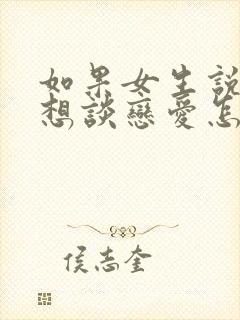 如果女生説
想談戀愛怎
侯志奎